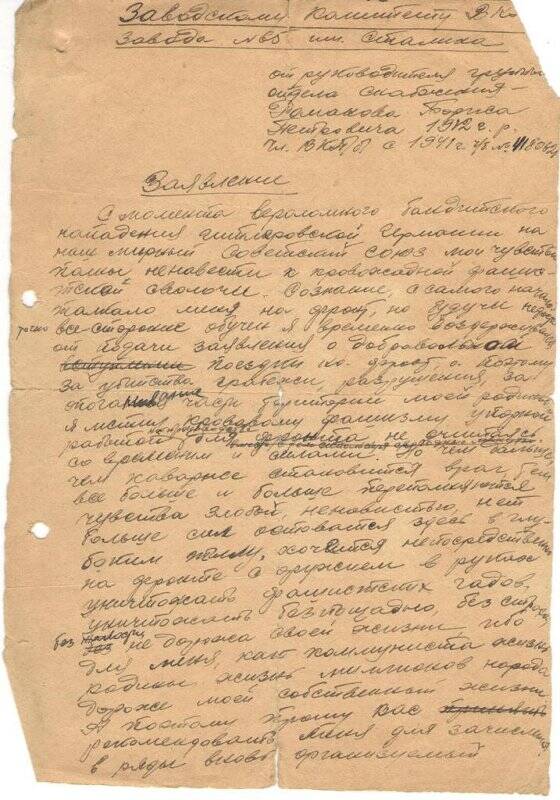 Заводскому Комитету В
Завода №5 им. Сталина
от руководителя группы
отдела снабжения-
Романова Бориса
1912 г. р.
чл. ВКП/б с 1941 г.
Заявление
С момента вероломного бандитского
нападения гитлеровской Германии на
наш мирный Советский Союз мои чувства
полны ненависти к кровожадной фашис-
тской сволочи. Сознание с самого начала
толкало меня на фронт, но будучи недоста
точно
все сторонне обучен я временно воздерживался
от подачи заявления о добровольной
поездки на фронт. Поэтому
за убийства, грабежи, разрушения, за
части территории моей родины
я мстил кровавому фашизму упорной
работой для фронта не считаясь
со временем и силами. Но чем дальше
чем коварнее становится враг, тем
все больше и больше переполняются
чувства злобой, ненавистью, нет
больше сил оставаться здесь в глу-
боком тылу, хочется непосредственно
на фронте с оружием в руках
уничтожать фашистских гадов,
уничтожать беспощадно, без страха
без
не дорожа своей жизни ибо
для меня, как коммуниста жизнь
родины жизнь миллионов народа
дороже моей собственной жизни
А поэтому прошу вас
рекомендовать меня для зачисления
в ряды вновь организуемый